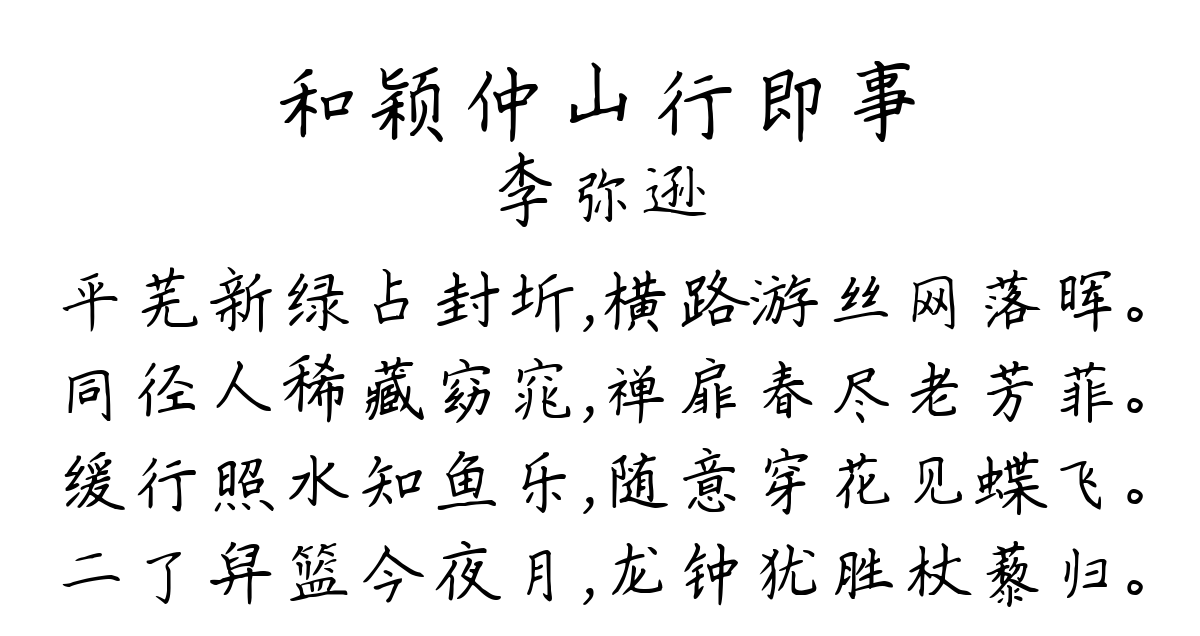 和颖仲山行即事
李弥逊
平芜新绿占封圻,横路游丝网落晖。
同径人稀藏窈窕,禅扉春尽老芳菲。
缓行照水知鱼乐,随意穿花见蝶飞。
二了舁篮今夜月,龙钟犹胜杖藜归。